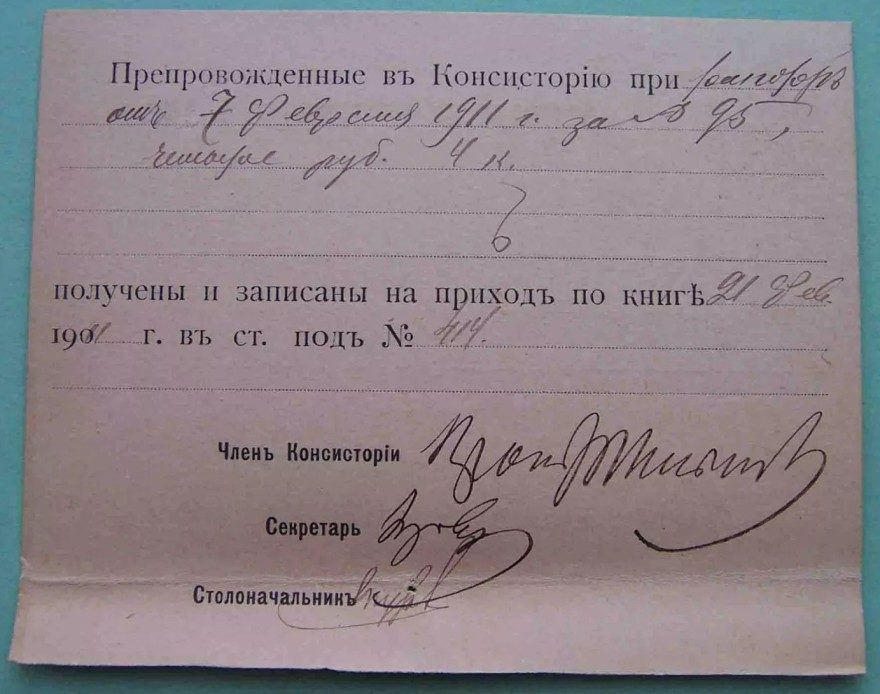 Препровожденные въ Консисторію при рапортѣ
отъ 7 Февраля 1911 г. за № 95,
четыре руб. 4 к.
получены и записаны на приходъ по книгѣ 21 Фев.
1911 г. въ ст. подъ № 414.
Членъ Консисторіи
Секретарь
Столоначальникъ